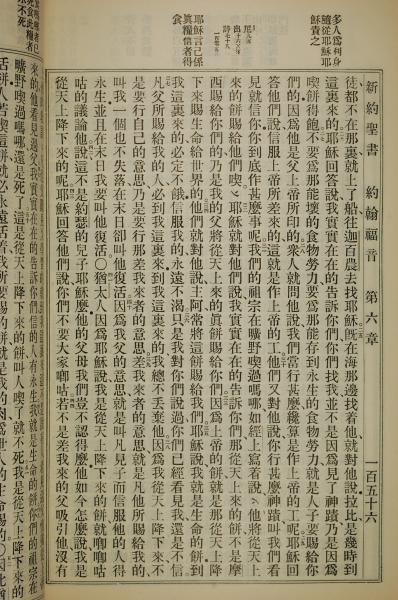 新約聖書 約翰福音 第六章 一百五十六
多人爲利身
隨從耶穌耶
穌責之
徒都不在那裏就上了船往迦百農去找耶穌旣在海那邊找着他就對他說拉比是幾時到
這裏來的耶穌回答說我實實在在的告訴你們你們找我並不是因爲見了神蹟乃是因爲
喫餅得飽不要爲那能壞的食物勞力要爲那能存到永生的食物勞力就是人子要賜給你
們的因爲他是父上帝所印的衆人就問他說我們當行甚麼纔算是作上帝的工呢耶穌回
答他們說信服上帝所差來的這就是作上帝的工他們又對他說你行甚麼神蹟叫我們看
見就信你你到底作甚麼事呢我們的祖宗在曠野喫過嗎哪如經上寫着說他將從天上
來的餅賜給他們喫耶穌就對他們說我實實在在的告訴你們那從天上來的餅不是摩
西賜給你們的乃是我的父將從天上來的眞餅賜給你們因爲上帝的餅就是那從天上降
下來賜生命給世界的他們就對他說主阿常將這餅賜給我們耶穌說我就是生命的餅到
我這裏來的必定不餓信服我的永遠不渴只是我對你們說過你們已經看見我還是不信
凡父所賜給我的人必到我這裏來到我這裏來的我總不丟棄他因爲我從天上降下來不
是要行自己的意思乃是要行那差我來者的意思差我來者的意思就是凡他所賜給我的
叫我一個也不失落在末日却叫他復活因爲我父的意思就是叫凡見子而信服他的人得
永生並且在末日我要叫他復活○猶太人因爲耶穌說我是從天上降下來的餅就唧唧咕
咕的議論他說這不是約瑟的兒子耶穌麼他的父母我們豈不認得麼他如今怎麼說我是
從天上降下來的呢耶穌回答他們說你們不要大家唧咕若不是差我來的父吸引他沒有
耶穌言己係
眞糧信者得
食
死食此糧者
不死
來的他看見過父我實實在在的告訴你們信我的人有永生我就是生命的餅你們的祖宗在
曠野喫過嗎哪還是死了這是從天上降下來的餅叫人喫了就不死我是從天上降下來的
活餅人若喫這餅就必永遠活着我所要賜的餅就是我的肉爲世人的生命賜的○因此猶